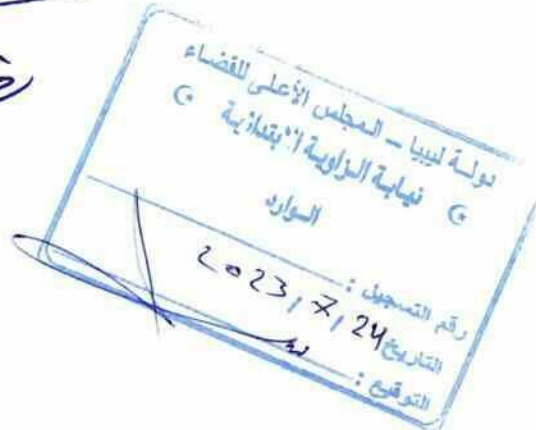 دولة ليبيا – المجلس الأعلى للقضاء
نيابة الزاوية الابتدائية
الوارد
رقم التسجيل :
التاريخ 2023,7,24
التوقيع :